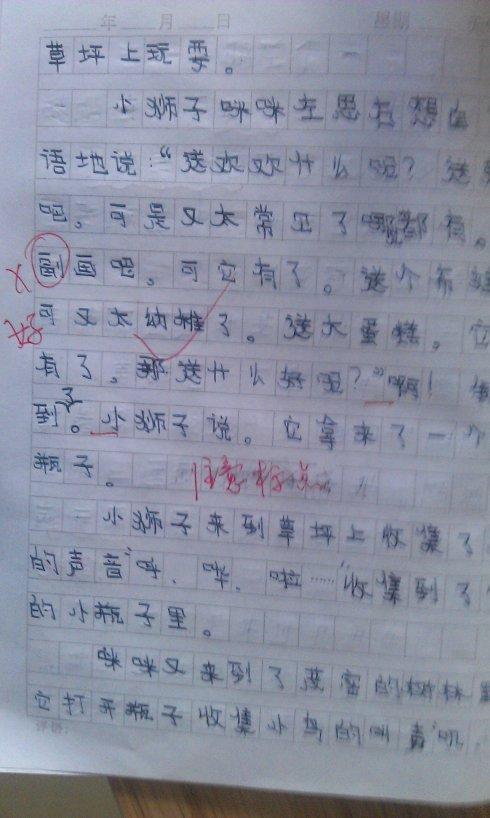 年 月 日 星期
草坪上玩耍。
小狮子咪咪在思考想自
语地说:“送欢欢什么呢?送
吧。可是又太常见了都有。
副画吧。可它有了。送个布
好可又太幼稚了。送大蛋糕。它
有了。那送什么好呢?”啊!
到了。小狮子说。它拿来了一个
瓶子。 注意标点
小狮子来到草坪上收集了
的声音“呼、哗、啦……”收集到了
的小瓶子里。
咪咪又来到了茂密的树林里
它打开瓶子收集小鸟的叫声“叽
评语: